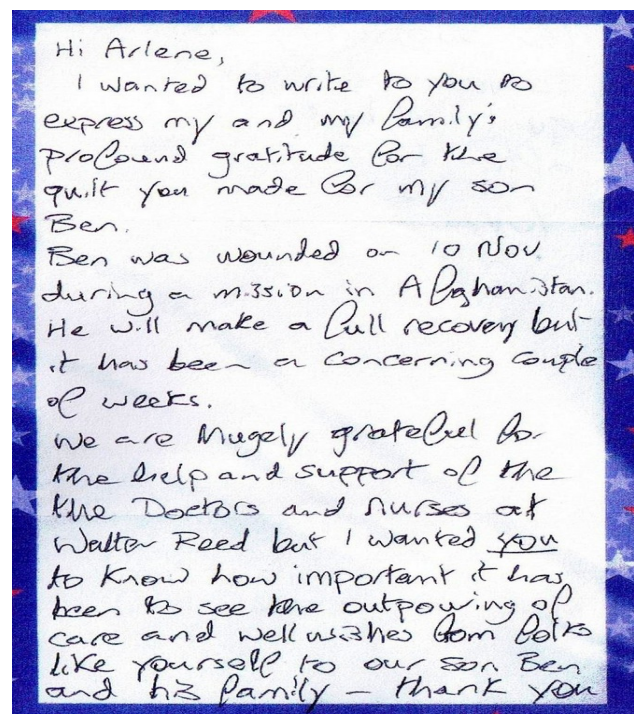 Hi Arlene,
I wanted to write to you to
express my and my family's
profound gratitude for the
quilt you made for my son
Ben.
Ben was wounded on 10 Nov
during a mission in Afghanistan.
He will make a full recovery but
it has been a concerning couple
of weeks.
We are hugely grateful for
the help and support of the
the Doctors and nurses at
Walter Reed but I wanted you
to know how important it has
been to see the outpouring of
care and well wishes from folks
like yourself to our son Ben
and his family – thank you